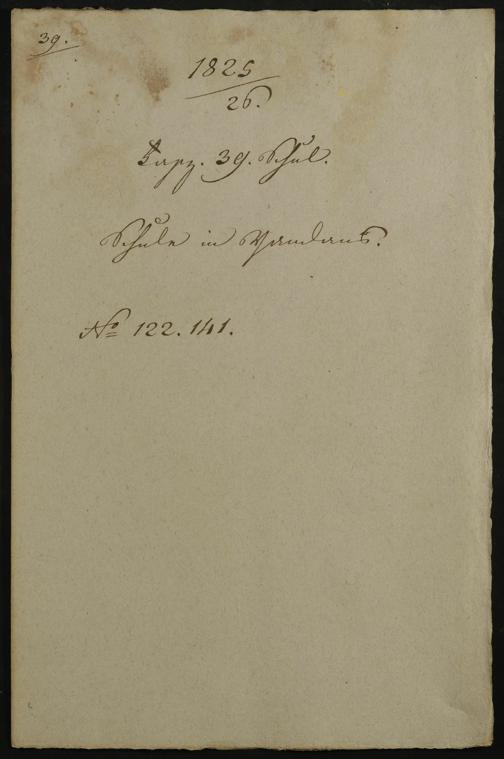 39.
1825
26.
Fasz. 39. Schul.
Schule in Vandans.
No 122. 141.